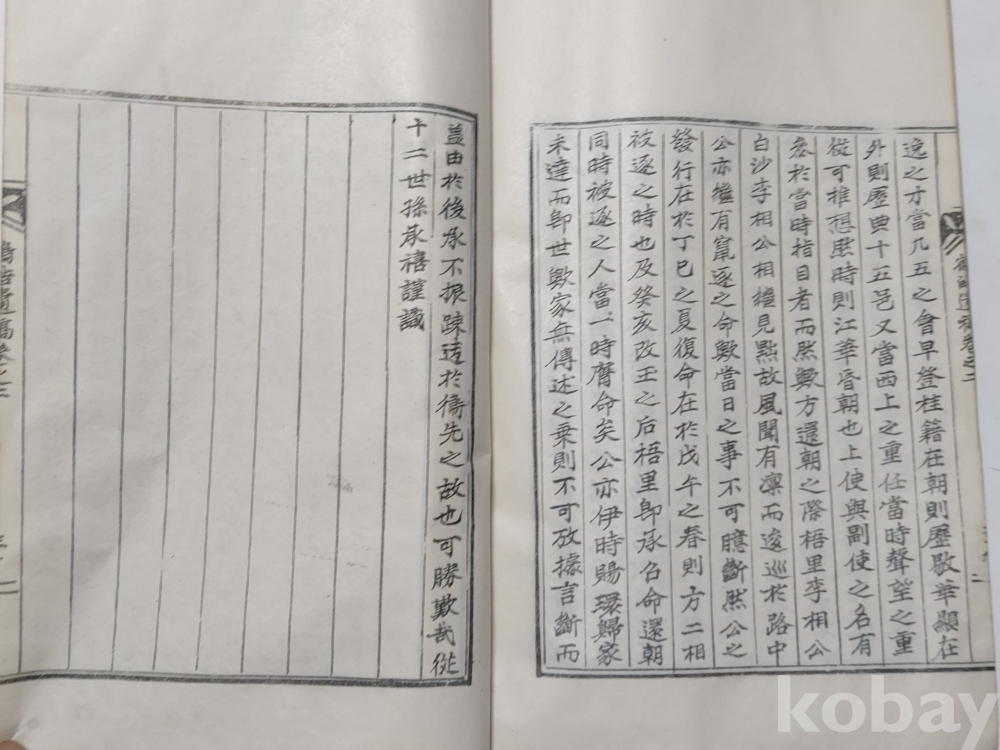 逸之才當九五之會早登桂籍在朝則歷敭華顯在
外則歷典十五邑又當西上之重任當時聲望之重
從可推想然時則江華昏朝也上使與副使之名有
忝於當時指目者而然歟方還朝之際梧里李相公
白沙李相公相繼見黜故風聞有凜而逡巡於路中
公亦繼有竄逐之命歟當日之事不可臆斷然公之
發行在於丁巳之夏復命在於戊午之春則方二相
被逐之時也及癸亥改王之后梧里卽承召命還朝
同時被逐之人當一時膺命矣公亦伊時賜環歸家
未達而卽世歟家無傳述之乘則不可攷據言斷而
盖由於後承不振踈迃於衛先之故也可勝歎哉從
十二世孫承禧謹識
遺稿卷之二
kobay